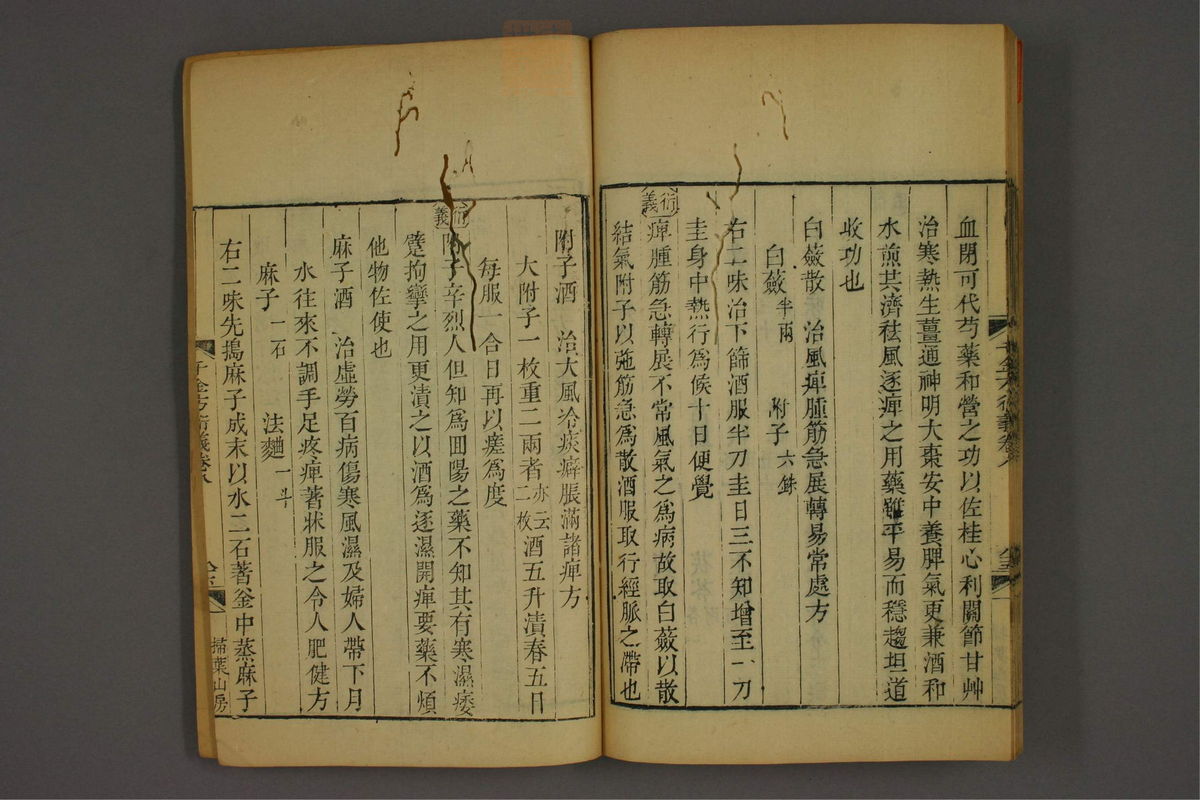 血閉可代芍藥和營之功以佐桂心利關節甘艸
治寒熱生薑通神明大棗安中養脾氣更兼酒和
水煎其濟祛風逐痺之用藥雖平易而穩趨坦道
收功也
白蘞散　治風痺腫筋急展轉易常處方
白蘞半兩　附子六銖
右二味治下篩酒服半刀圭日三不知增至一刀
圭身中熱行爲候十日便覺
衍義
痺腫筋急轉展不常風氣之爲病故取白蘞以散
結氣附子以弛筋急爲散酒服取行經脈之滯也
附子酒　治大風冷痰癖脹滿諸痺方
大附子一枚重二兩者亦云二枚酒五升漬春五日
每服一合日再以瘥爲度
衍義
附子辛烈人但知爲回陽之藥不知其有寒濕痿
躄拘攣之用更漬之以酒爲逐濕開痺要藥不煩
他物佐使也
麻子酒　治虛勞百病傷寒風濕及婦人帶下月
水往來不調手足疼痺著牀服之令人肥健方
麻子一石　法麴一斗
右二味先搗麻子成末以水二石著釜中蒸麻子
千金方衍義卷八
掃葉山房